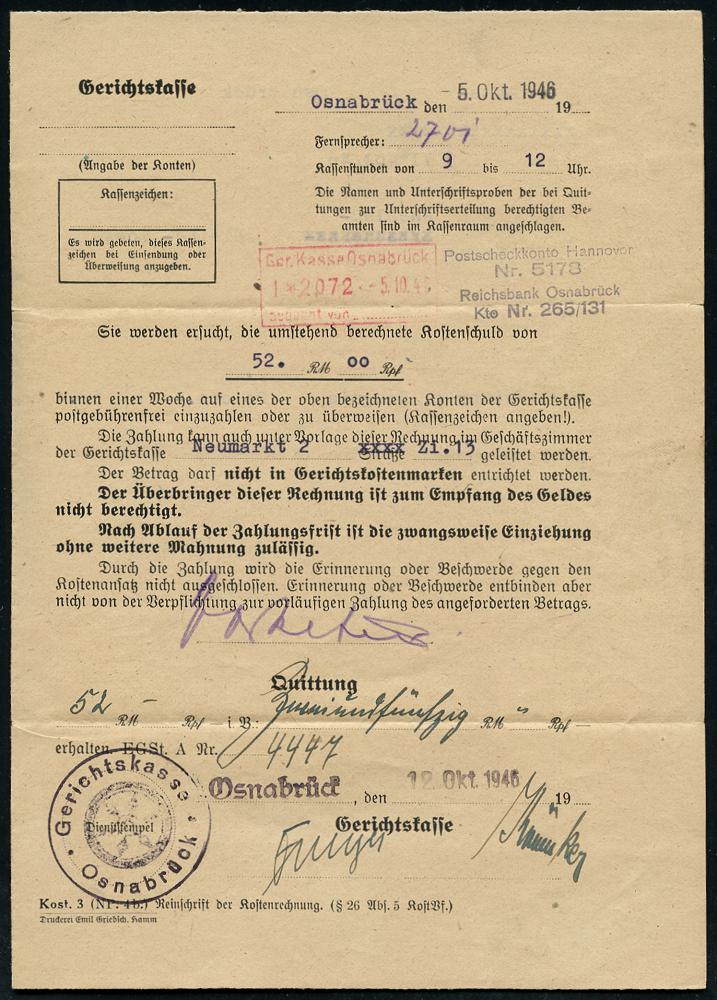 Gerichtskasse
Osnabrück den - 5. Okt. 1946 19
Fernsprecher: 2701
(Angabe der Konten)
Kassenstunden von 9 bis 12 Uhr.
Kassenzeichen:
Es wird gebeten, dieses Kassen-
zeichen bei Einsendung oder
Überweisung anzugeben.
Die Namen und Unterschriftsproben der bei Quit-
tungen zur Unterschriftserteilung berechtigten Be-
amten sind im Kassenraum angeschlagen.
Ger. Kasse Osnabrück
1 * 2072 - - 5.10.46
Postscheckkonto Hannover
Nr. 5178
Reichsbank Osnabrück
Kto Nr. 265/131
Sie werden ersucht, die umstehend berechnete Kostenschuld von
52. RM 00 Rpf
binnen einer Woche auf eines der oben bezeichneten Konten der Gerichtskasse
postgebührenfrei einzuzahlen oder zu überweisen (Kassenzeichen angeben!).
Die Zahlung kann auch unter Vorlage dieser Rechnung im Geschäftszimmer
der Gerichtskasse Neumarkt 2 xxxx Straße Zi.13 geleistet werden.
Der Betrag darf nicht in Gerichtskostenmarken entrichtet werden.
Der Überbringer dieser Rechnung ist zum Empfang des Geldes
nicht berechtigt.
Nach Ablauf der Zahlungsfrist ist die zwangsweise Einziehung
ohne weitere Mahnung zulässig.
Durch die Zahlung wird die Erinnerung oder Beschwerde gegen den
Kostenansatz nicht ausgeschlossen. Erinnerung oder Beschwerde entbinden aber
nicht von der Verpflichtung zur vorläufigen Zahlung des angeforderten Betrags.
Quittung
52 RM — Rpf — i. B.: Zweiundfünfzig RM " Rpf —
erhalten. EGSt. A Nr. 4447
Osnabrück, den 12. Okt. 1946 19
Gerichtskasse
Gerichtskasse
Dienststempel
Osnabrück
Kost. 3 (Nr. 4b.) Reinschrift der Kostenrechnung. (§ 26 Abs. 5 KostVf.)
Druckerei Emil Griebsch. Hamm